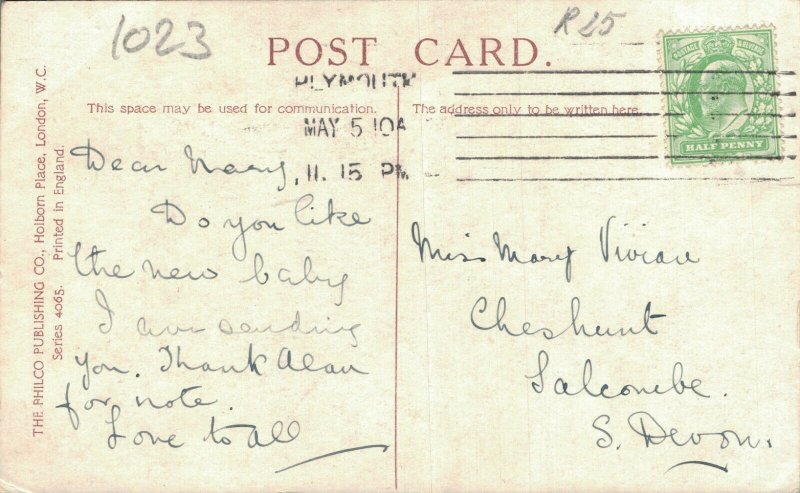 1023
R25
POST CARD.
POSTAGE & REVENUE
HALF PENNY
PLYMOUTH
MAY 5 10A
11. 15 PM
This space may be used for communication.
The address only to be written here.
THE PHILCO PUBLISHING CO., Holborn Place, London, W.C.
Series 4065. Printed in England.
Dear Mary,
Do you like
the new baby
I am sending
you. Thank Alan
for note.
Love to all
Miss Mary Vivian
Cheshunt
Salcombe.
S. Devon.